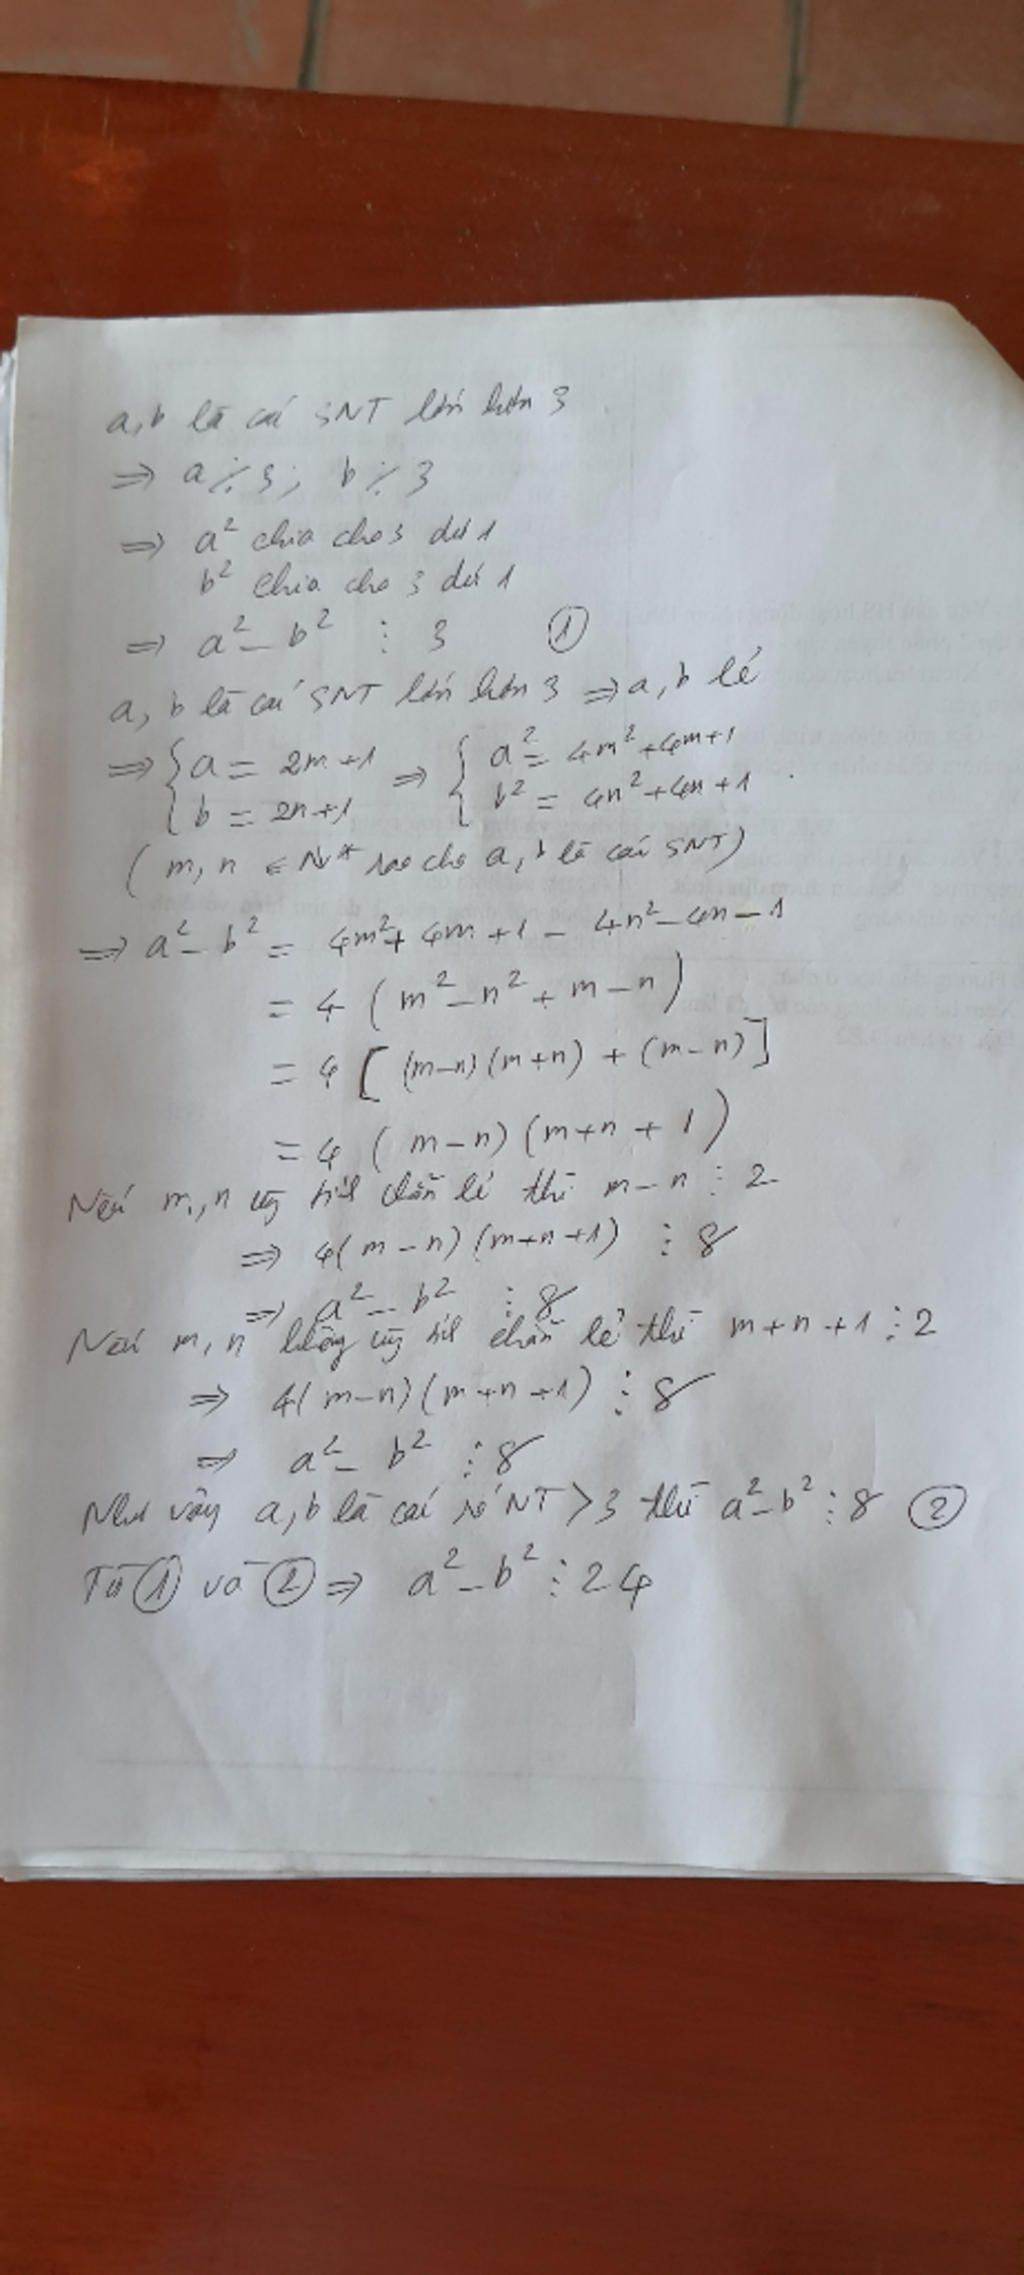 a, b là các SNT lớn hơn 3
⇒ a ⋮̸ 3; b ⋮̸ 3
⇒ a² chia cho 3 dư 1
b² chia cho 3 dư 1
⇒ a² - b² ⋮ 3 ①
a, b là các SNT lớn hơn 3 ⇒ a, b lẻ
⇒ { a = 2m+1 ⇒ { a² = 4m²+4m+1
b = 2n+1 b² = 4n²+4n+1
(m, n ∈ N* sao cho a, b là các SNT)
⇒ a² - b² = 4m²+4m+1 - 4n² - 4n - 1
= 4 (m² - n² + m - n)
= 4 [(m-n)(m+n) + (m-n)]
= 4 (m-n)(m+n+1)
Nếu m, n cg tính chẵn lẻ thì m-n ⋮ 2
⇒ 4(m-n)(m+n+1) ⋮ 8
⇒ a² - b² ⋮ 8
Nếu m, n không cg tính chẵn lẻ thì m+n+1 ⋮ 2
⇒ 4(m-n)(m+n+1) ⋮ 8
⇒ a² - b² ⋮ 8
Như vậy a, b là các số NT > 3 thì a² - b² ⋮ 8 ②
Từ ① và ② ⇒ a² - b² ⋮ 24